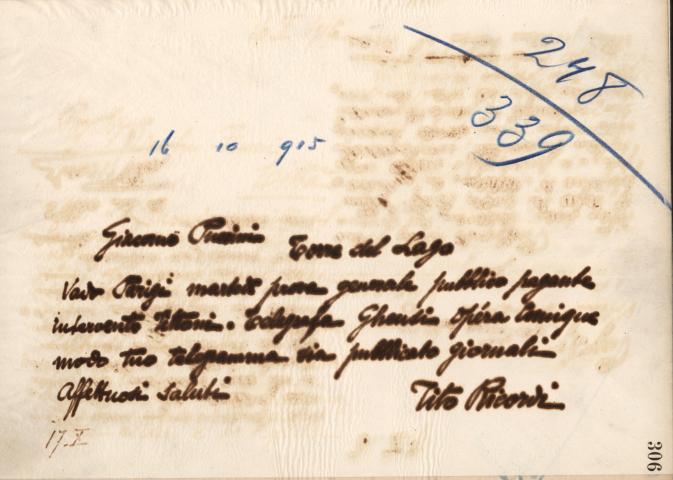 248
339
16 10 915
Giacomo Puccini Torre del Lago
Vado Parigi martedì prova generale pubblico pagante
intervento Tittoni. Telegrafa Gheusi Opéra Comique
modo tuo telegramma sia pubblicato giornali
Affettuosi saluti Tito Ricordi
17.X
306